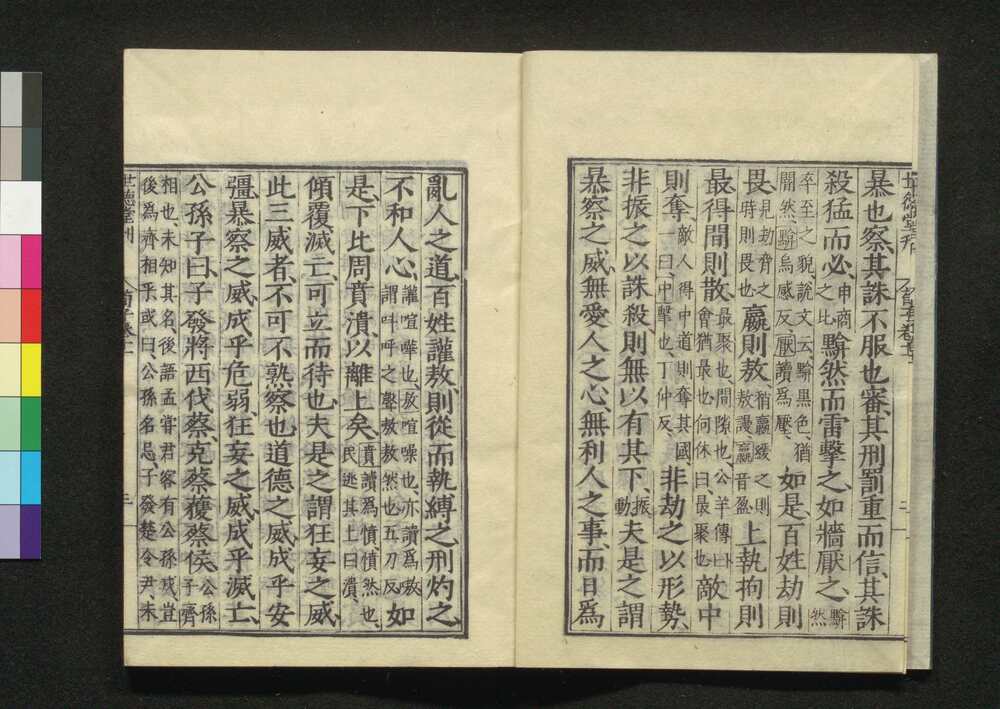 暴也察、其誅不服也審、其刑罰重而信、其誅
殺猛而必、申商之比黭然而雷擊之、如牆厭之、黭然
卒至之貌說文云黭黑色、猶闇然、黭烏感反、厭讀爲壓、如是、百姓劫則
畏見劫脅之時則畏也嬴則敖、稍嬴緩之則敖謾嬴音盈上執拘則
最得間則散、最聚也、間隙也、公羊傳曰會猶最也何休曰最聚也敵中
則奪、敵人得中道則奪其國、一曰、中擊也、丁仲反、非劫之以形勢、
非振之以誅殺、則無以有其下、振動夫是之謂
暴察之威、無愛人之心、無利人之事、而日爲
世德堂刊
亂人之道、百姓讙敖、則從而執縛之、刑灼之、
不和人心、讙喧嘩也、敖喧噪也、亦讀爲嗷謂叫呼之聲敖敖然也五刀反如
是、下比周賁潰、以離上矣、賁讀爲憤憤然也、民逃其上曰潰、
傾覆滅亡、可立而待也夫是之謂狂妄之威、
此三威者、不可不熟察也道德之威成乎安
彊、暴察之威、成乎危弱、狂妄之威、成乎滅亡、
公孫子曰、子發將西伐蔡、克蔡、獲蔡侯、公孫子齊
相也、未知其名、後語孟嘗君客有公孫戍、豈後爲齊相乎或曰、公孫名忌、子發楚令尹、未
世德堂刊